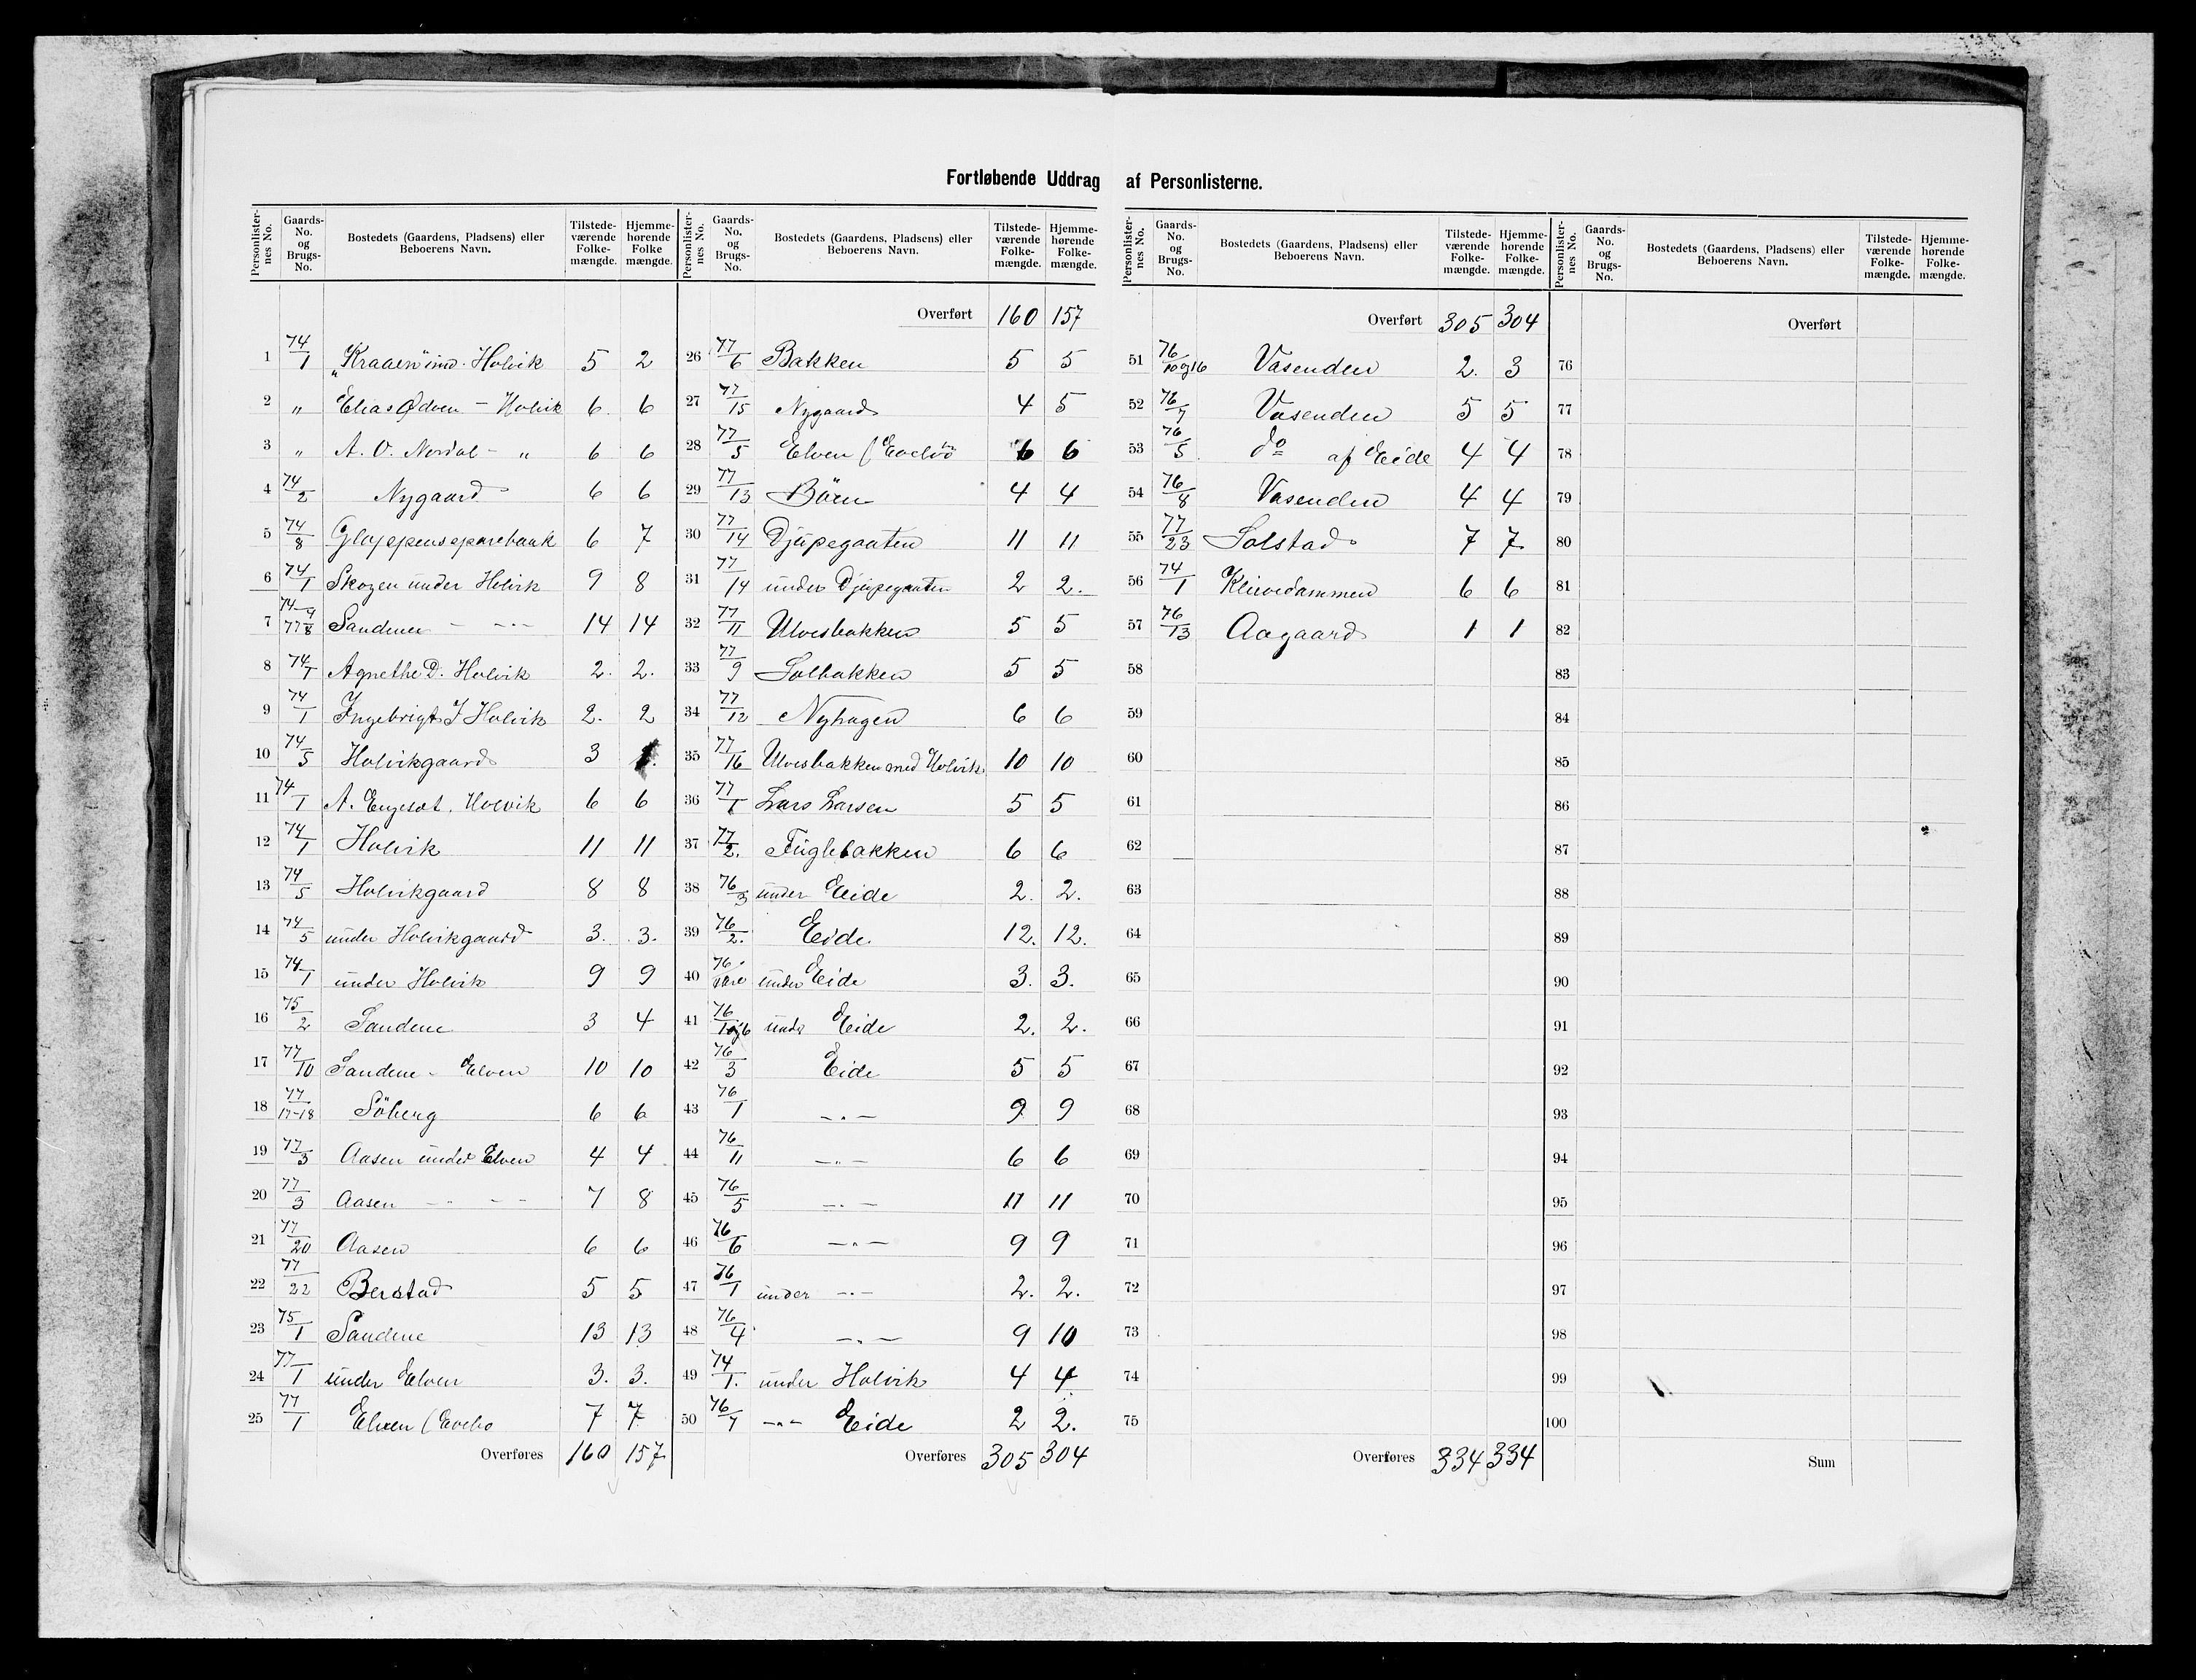 Fortløbende Uddrag af Personlisterne.
Personlister-nes No. Gaards-No. og Brugs-No. Bostedets (Gaardens, Pladsens) eller Beboerens Navn. Tilstede-værende Folke-mængde. Hjemme-hørende Folke mængde.
1 74/1 „Kraaen" ind. Holvik 5 2
2 „ Elias Ødven - Holvik 6. 6
3 „ A. O. Nordal - „ 6 6
4 74/2 Nygaard 6 6
5 74/8 Gloppens sparebank 6 7
6 74/1 Skogen under Holvik 9 8
7 74-9 77/8 Sandene - -„- 14 14
8 74/1 Agnethe D. Holvik 2. 2.
9 74/1 Ingebrigt J Holvik 2. 2
10 74/5 Holvikgaard 3
11 74/1 A. Engeset. Holvik 6 6
12 74/1 Holvik 11 11
13 74/5 Holvikgaard 8 8
14 74/5 under Holvikgaard 3. 3.
15 74/1 under Holvik 9 9
16 75/2 Sandene 3 4
17 77/10 Sandene - Elven 10 10
18 77/17-18 Söberg 6 6
19 77/3 Aasen under Elven 4 4
20 77/3 Aasen -„- - - 7 8
21 77/20 Aasen 6 6
22 77/22 Berstad 5 5
23 75/1 Sandene 13 13
24 77/1 under Elven 3. 3.
25 77/1 Elven (Evebo 7 7
Overføres 160 157
Personlister-nes No. Gaards-No. og Brugs-No. Bostedets (Gaardens, Pladsens) eller Beboerens Navn. Tilstede-værende Folke-mængde. Hjemme-hørende Folke-mængde.
Overført 160 157
26 77/6 Bakken 5 5
27 77/15 Nygaard 4 5
28 77/5 Elven ( 6 6
29 77/13 Börn 4 4
30 77/14 Djupegaaten 11 11
31 77/14 under Djupegaaten 2 2.
32 77/11 Ulvesbakken 5 5
33 77/9 Solbakken 5 5
34 77/12 Nyhagen 6 6
35 77/16 Ulvesbakken med Holvik 10 10
36 77/1 Lars Larsen 5 5
37 77/2. Fuglebakken 6 6
38 76/3 under Eide 2. 2.
39 76/2. Eide. 12. 12.
40 76. under Eide 3. 3.
41 76/1og6 under Eide 2. 2.
42 76/3 Eide 5 5
43 76/1 -„- 9 9
44 76/11 -„- 6 6
45 76/5 -„- 11 11
46 76/6 -„- 9 9
47 76/1 under -„- 2. 2.
48 76/4 -„- 9 10
49 74/1. under Holvik 4 4
50 76/7 -„- Eide 2 2.
Overføres 305 304
Personlister-nes No. Gaards-No. og Brugs-No. Bostedets (Gaardens, Pladsens) eller Beboerens Navn. Tilstede-værende Folke-mængde. Hjemme-hørende Folke-mængde.
Overført 305 304
51 76/10og16 Vasenden 2. 3
52 76/7 Vasenden 5 5
53 76/5 do af Eide 4 4
54 76/8 Vasenden 4 4
55 77/23 Solstad 7 7
56 74/1 Kleivedammen 6 6
57 76/13 Aagaard 1 1
58
59
60
61
62
63
64
65
66
67
68
69
70
71
72
73
74
75
Overføres 334 334
Personlister-nes No. Gaards-No. og Brugs-No. Bostedets (Gaardens, Pladsens) eller Beboerens Navn. Tilstede-værende Folke-mængde. Hjemme-hørende Folke-mængde.
Overført
76
77
78
79
80
81
82
83
84
85
86
87
88
89
90
91
92
93
94
95
96
97
98
99
100
Sum